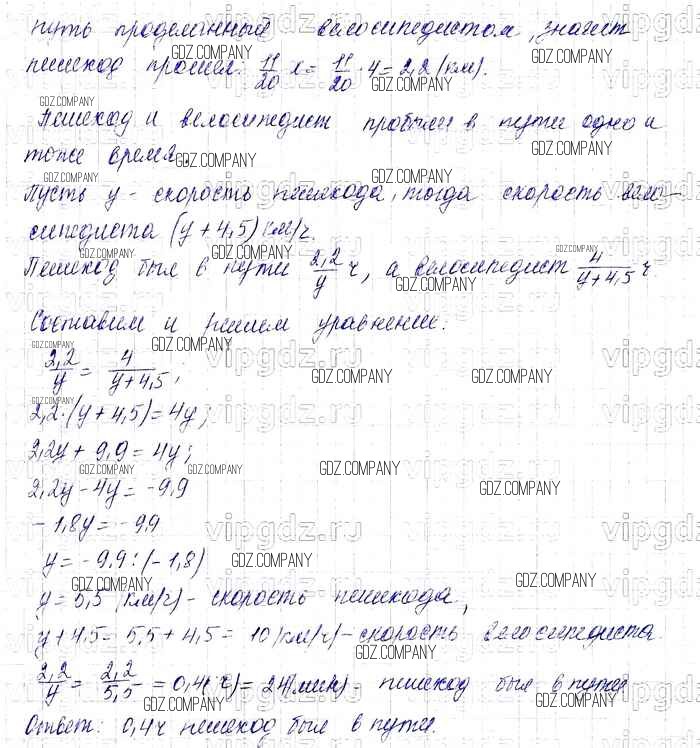 путь проделанный велосипедистом, значит
пешеход прошел: 11/20 x = 11/20 · 4 = 2,2 (км).
Пешеход и велосипедист пробыли в пути одно и
тоже время.
Пусть y - скорость пешехода, тогда скорость вело-
сипедиста (y + 4,5) км/ч.
Пешеход был в пути 2,2/y ч, а велосипедист 4/(y+4,5) ч
Составим и решим уравнение:
2,2/y = 4/(y+4,5);
2,2·(y + 4,5) = 4y;
2,2y + 9,9 = 4y;
2,2y - 4y = -9,9
-1,8y = -9,9
y = -9,9 : (-1,8)
y = 5,5 (км/ч) - скорость пешехода,
y + 4,5 = 5,5 + 4,5 = 10 (км/ч) - скорость велосипедиста.
2,2/y = 2,2/5,5 = 0,4 (ч) = 24 (мин) - пешеход был в пути.
Ответ: 0,4ч пешеход был в пути.
GDZ.COMPANY
vipgdz.ru